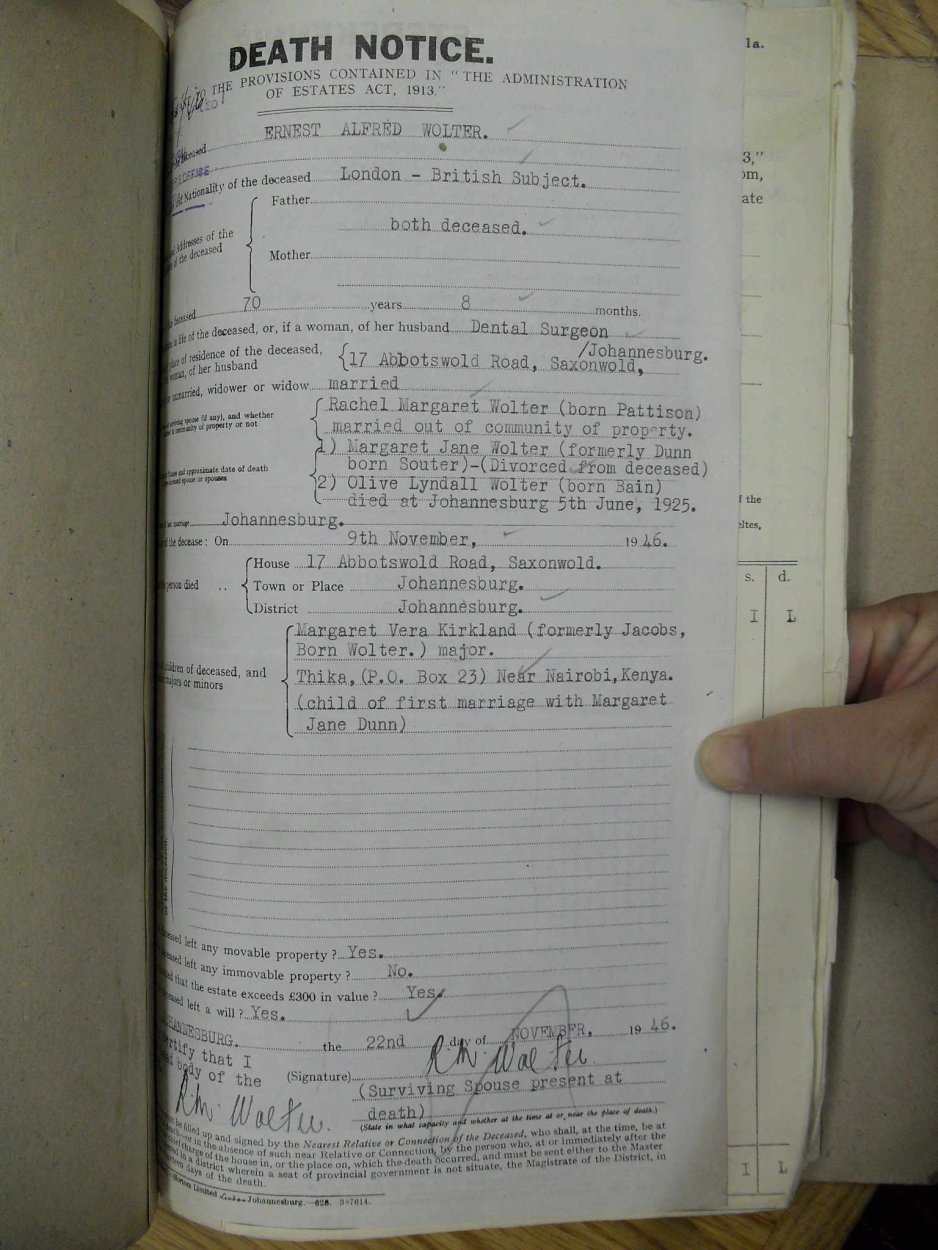 DEATH NOTICE.
THE PROVISIONS CONTAINED IN "THE ADMINISTRATION
OF ESTATES ACT, 1913."
ERNEST ALFRED WOLTER.
deceased
Nationality of the deceased London - British Subject.
Father
Addresses of the
of the deceased
both deceased.
Mother
deceased 70 years 8 months.
in life of the deceased, or, if a woman, of her husband Dental Surgeon
place of residence of the deceased, /Johannesburg.
woman, of her husband 17 Abbotswold Road, Saxonwold,
unmarried, widower or widow married
surviving spouse (if any), and whether Rachel Margaret Wolter (born Pattison)
community of property or not married out of community of property.
1) Margaret Jane Wolter (formerly Dunn
and approximate date of death born Souter)-(Divorced from deceased)
spouse or spouses 2) Olive Lyndall Wolter (born Bain)
died at Johannesburg 5th June, 1925.
Johannesburg.
of the decease: On 9th November, 1946.
House 17 Abbotswold Road, Saxonwold.
person died .. Town or Place Johannesburg.
District Johannesburg.
Margaret Vera Kirkland (formerly Jacobs,
Born Wolter.) major.
children of deceased, and
majors or minors
Thika, (P.O. Box 23) Near Nairobi, Kenya.
(child of first marriage with Margaret
Jane Dunn)
left any movable property? Yes.
left any immovable property? No.
that the estate exceeds £300 in value? Yes.
left a will? Yes.
JOHANNESBURG. the 22nd day of NOVEMBER, 1946.
certify that I
body of the (Signature) R.M. Wolter
R.M. Wolter. (Surviving Spouse present at
death)
(State in what capacity and whether at the time at or near the place of death.)
be filled up and signed by the Nearest Relative or Connection of the Deceased, who shall, at the time, be at
in the absence of such near Relative or Connection, by the person who, at or immediately after the
charge of the house in, or the place on, which the death occurred, and must be sent either to the Master
in a district wherein a seat of provincial government is not situate, the Magistrate of the District, in
days of the death.
Limited Johannesburg.—628. 387614.
1a.
3,"
om,
ate
f the
eltes,
s. d.
I L
I L